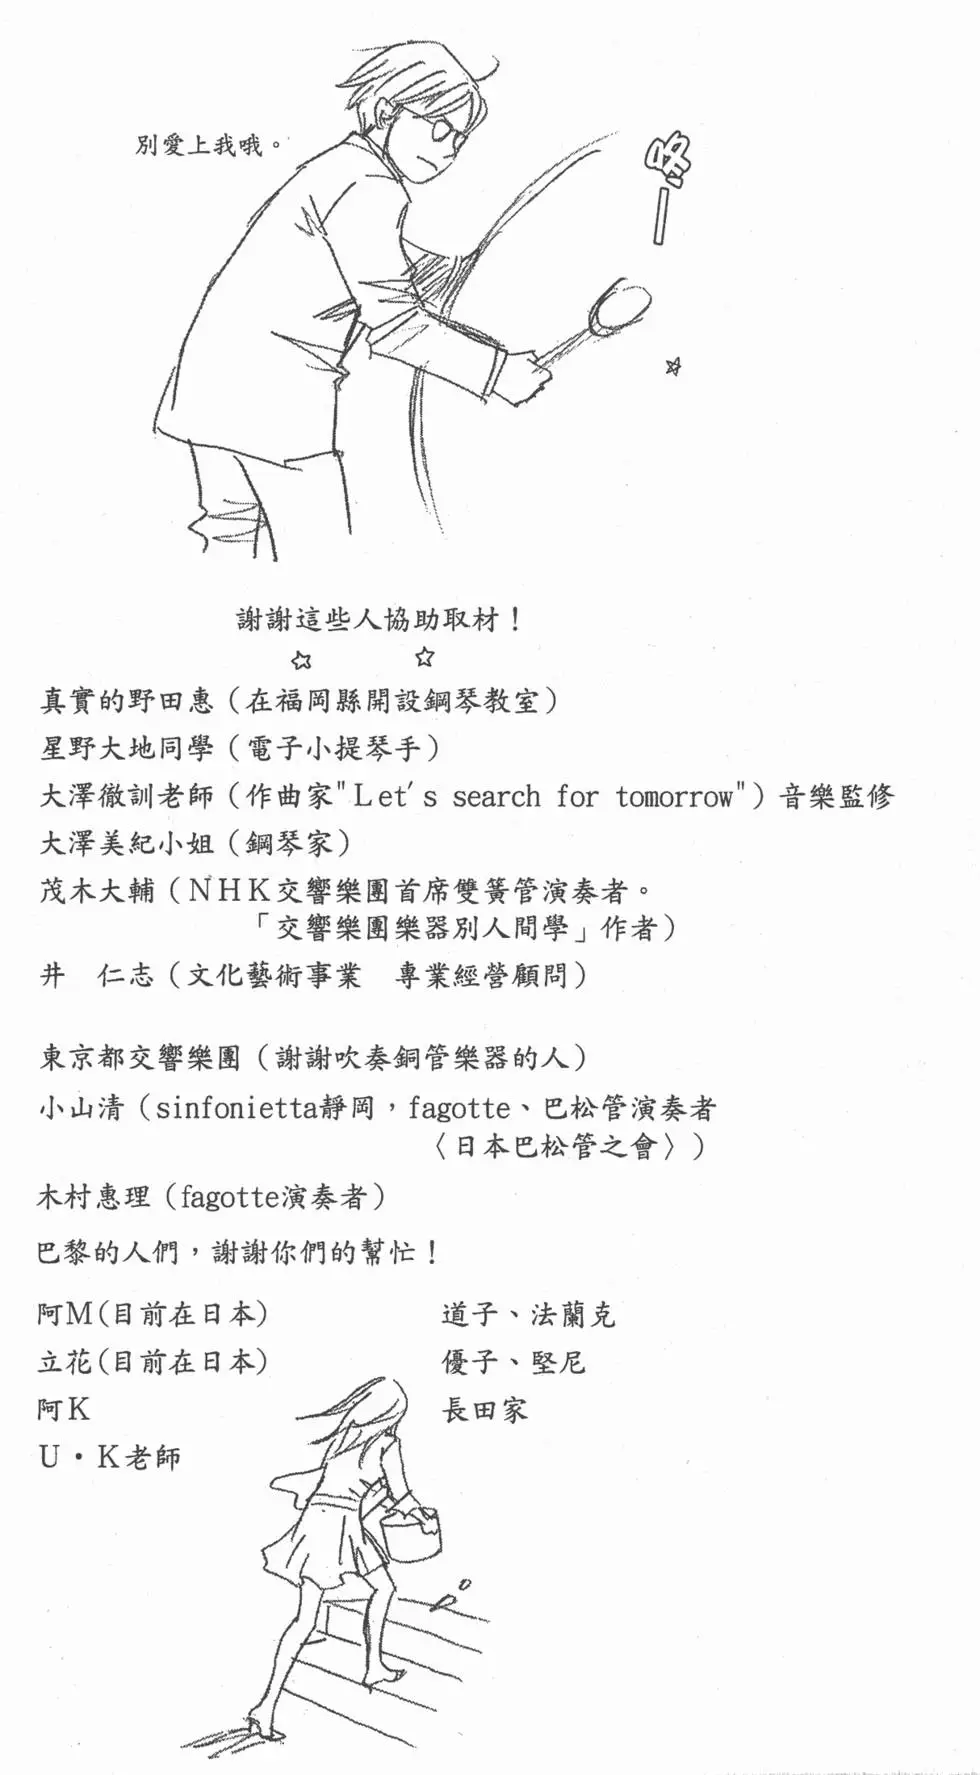 別愛上我哦。
咚—
謝謝這些人協助取材！
真實的野田惠（在福岡縣開設鋼琴教室）
星野大地同學（電子小提琴手）
大澤徹訓老師（作曲家"Let's search for tomorrow"）音樂監修
大澤美紀小姐（鋼琴家）
茂木大輔（NHK交響樂團首席雙簧管演奏者。
「交響樂團樂器別人間學」作者）
井　仁志（文化藝術事業　專業經營顧問）
東京都交響樂團（謝謝吹奏銅管樂器的人）
小山清（sinfonietta靜岡，fagotte、巴松管演奏者
〈日本巴松管之會〉）
木村惠理（fagotte演奏者）
巴黎的人們，謝謝你們的幫忙！
阿M(目前在日本)　道子、法蘭克
立花(目前在日本)　優子、堅尼
阿K　長田家
U・K老師